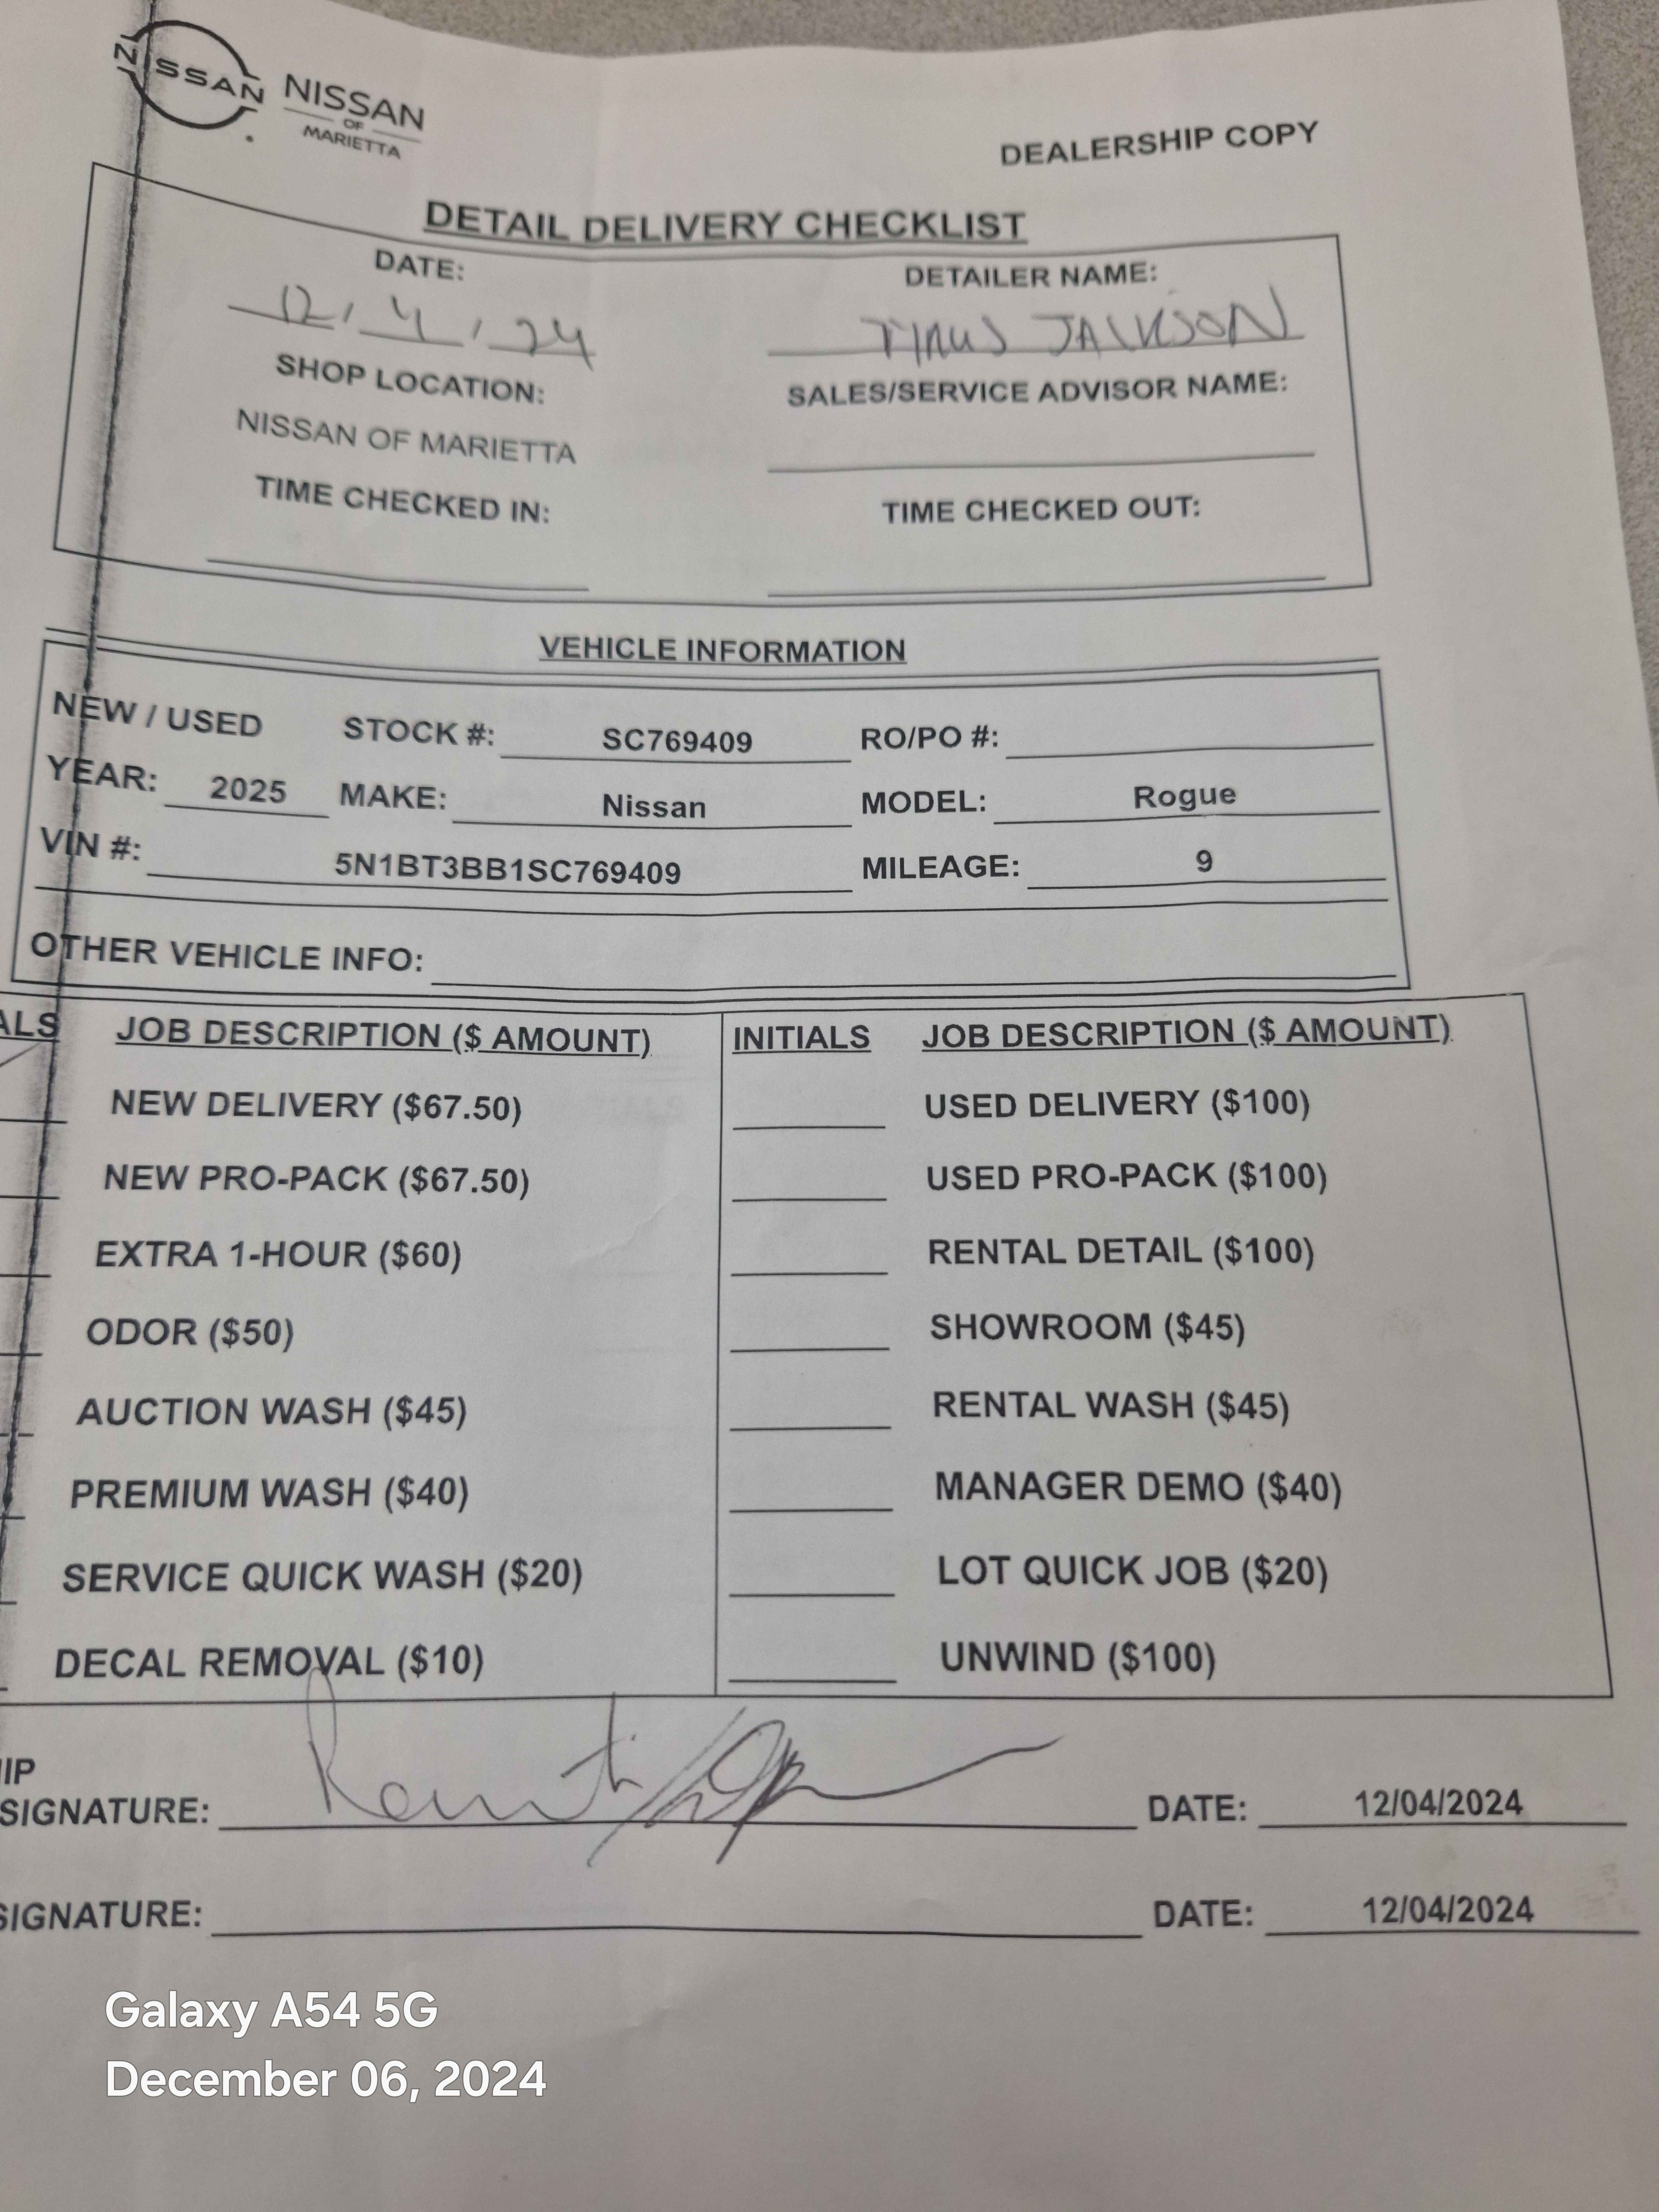 NISSAN NISSAN
OF
MARIETTA
DEALERSHIP COPY
DETAIL DELIVERY CHECKLIST
DATE: DETAILER NAME:
12 / 4 / 24 JACKSON
SHOP LOCATION: SALES/SERVICE ADVISOR NAME:
NISSAN OF MARIETTA
TIME CHECKED IN: TIME CHECKED OUT:
VEHICLE INFORMATION
NEW / USED STOCK #: SC769409 RO/PO #:
YEAR: 2025 MAKE: Nissan MODEL: Rogue
VIN #: 5N1BT3BB1SC769409 MILEAGE: 9
OTHER VEHICLE INFO:
ALS JOB DESCRIPTION ($ AMOUNT) INITIALS JOB DESCRIPTION ($ AMOUNT)
NEW DELIVERY ($67.50) USED DELIVERY ($100)
NEW PRO-PACK ($67.50) USED PRO-PACK ($100)
EXTRA 1-HOUR ($60) RENTAL DETAIL ($100)
ODOR ($50) SHOWROOM ($45)
AUCTION WASH ($45) RENTAL WASH ($45)
PREMIUM WASH ($40) MANAGER DEMO ($40)
SERVICE QUICK WASH ($20) LOT QUICK JOB ($20)
DECAL REMOVAL ($10) UNWIND ($100)
IP
SIGNATURE: DATE: 12/04/2024
SIGNATURE: DATE: 12/04/2024
Galaxy A54 5G
December 06, 2024